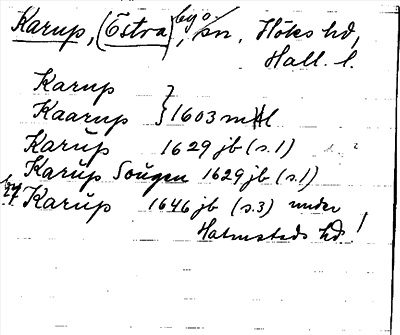 Karup, (Östra) by o sn, Höks hd,
Hall. l.
Karup
Kaarup } 1603 mHl
Karup 1629 jb (s.1)
Karup Sougen 1629 jb (s.1)
by Karup 1646 jb (s.3) under
Halmstads hd!